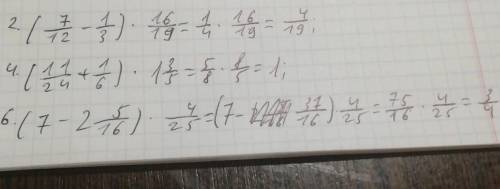 2. (7/12 - 1/3) · 16/19 = 1/4 · 16/19 = 4/19;
4. (11/24 + 1/6) · 1 3/5 = 5/8 · 8/5 = 1;
6. (7 - 2 5/16) · 4/25 = (7 - 37/16) 4/25 = 75/16 · 4/25 = 3/4